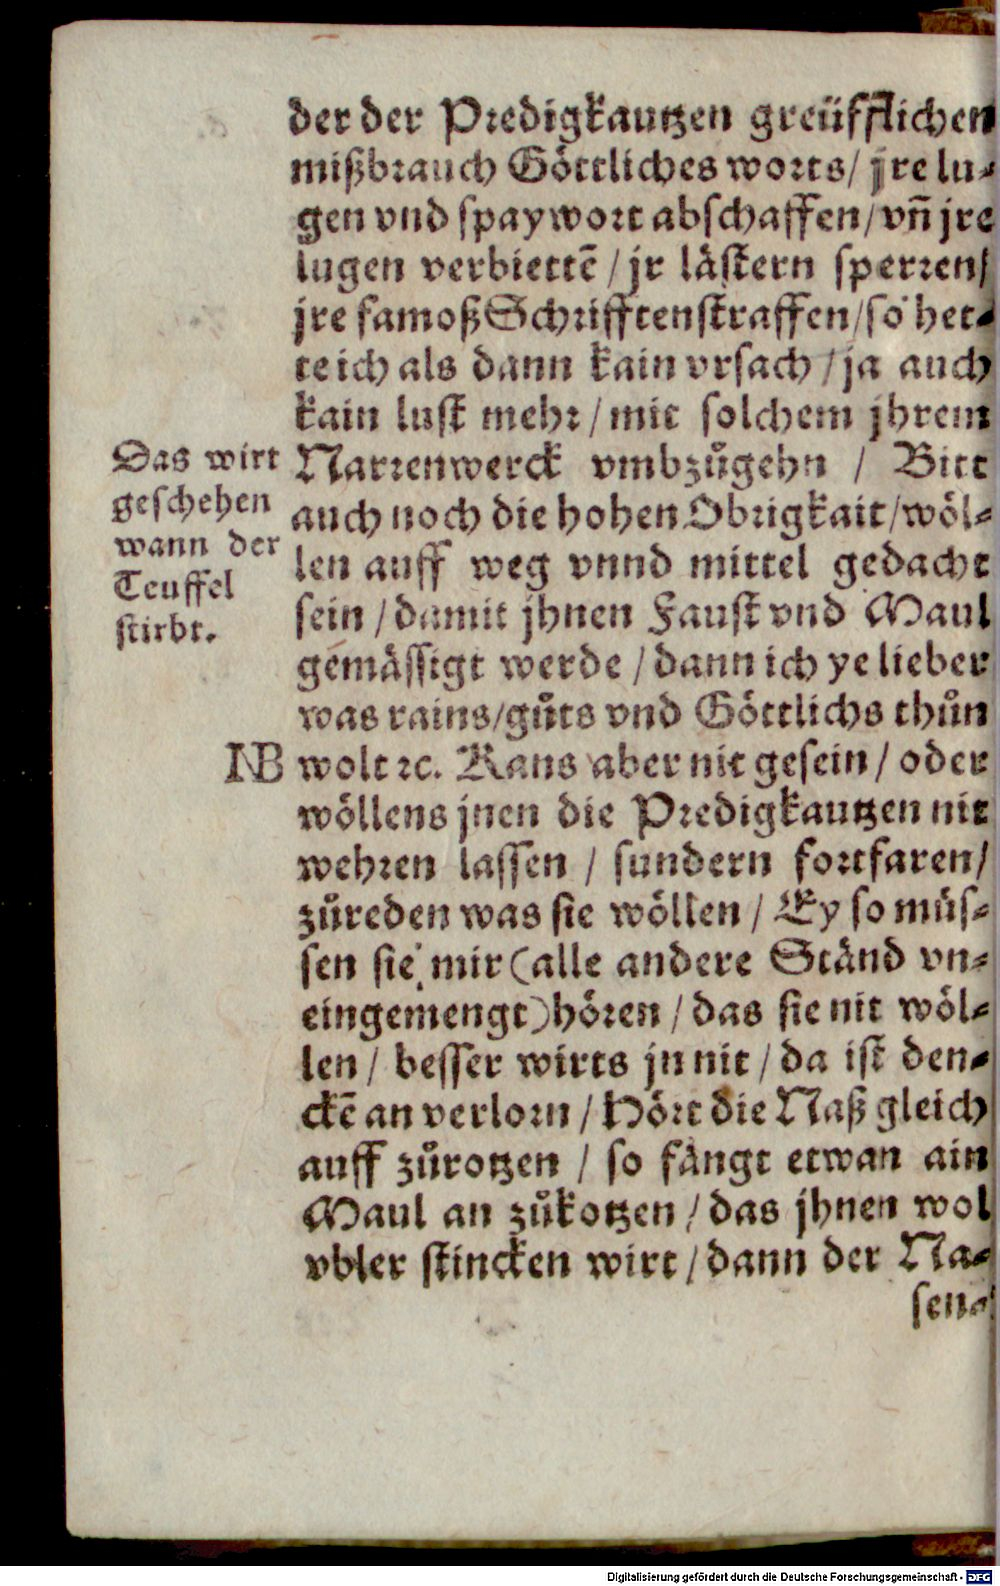 der der Predigkautzen greüfflichen
mißbrauch Göttliches worts/ jre lu⸗
gen vnd spaywort abschaffen/ vñ jre
lugen verbiettẽ / jr lästern sperren/
jre famoß Schrifften straffen/ so het⸗
te ich als dann kain vrsach / ja auch
kain lust mehr / mit solchem jhrem
Narrenwerck vmbzůgehn / Bitt
auch noch die hohen Obrigkait/ wöl⸗
len auff weg vnnd mittel gedacht
sein / damit jhnen Faust vnd Maul
gemässigt werde / dann ich ye lieber
was rains/ gůts vnd Göttlichs thůn
wolt ꝛc. Kans aber nit gesein / oder
wöllens jnen die Predigkautzen nit
wehren lassen / sundern fortfaren/
zůreden was sie wöllen / Ey so müs⸗
sen sie mir (alle andere Ständ vn⸗
eingemengt) hören / das sie nit wöl⸗
len / besser wirts jn nit / da ist den⸗
ckẽ an verlorn / Hört die Naß gleich
auff zůrotzen / so fängt etwan ain
Maul an zůkotzen / das jhnen wol
vbler stincken wirt / dann der Na⸗
sen⸗
Das wirt
geschehen
wann der
Teuffel
stirbt.
NB
Digitalisierung gefördert durch die Deutsche Forschungsgemeinschaft - DFG